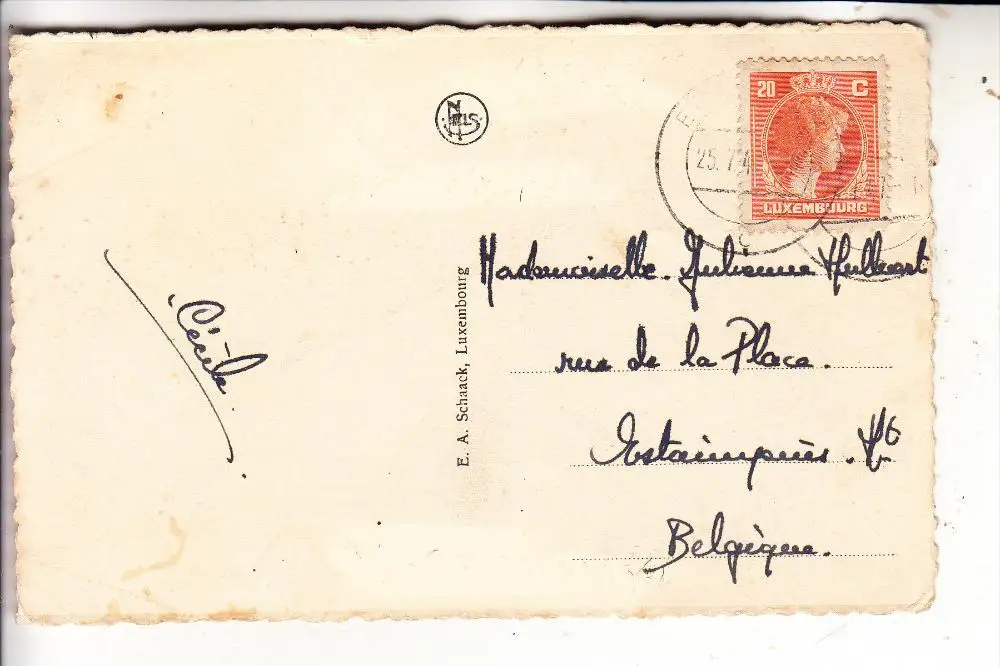 NELS
20 C
LUXEMBOURG
25.7.4
Mademoiselle. Julienne
rue de la Place.
Estaimpuis. Ht
Belgique.
E. A. Schaack, Luxembourg
Cécile.